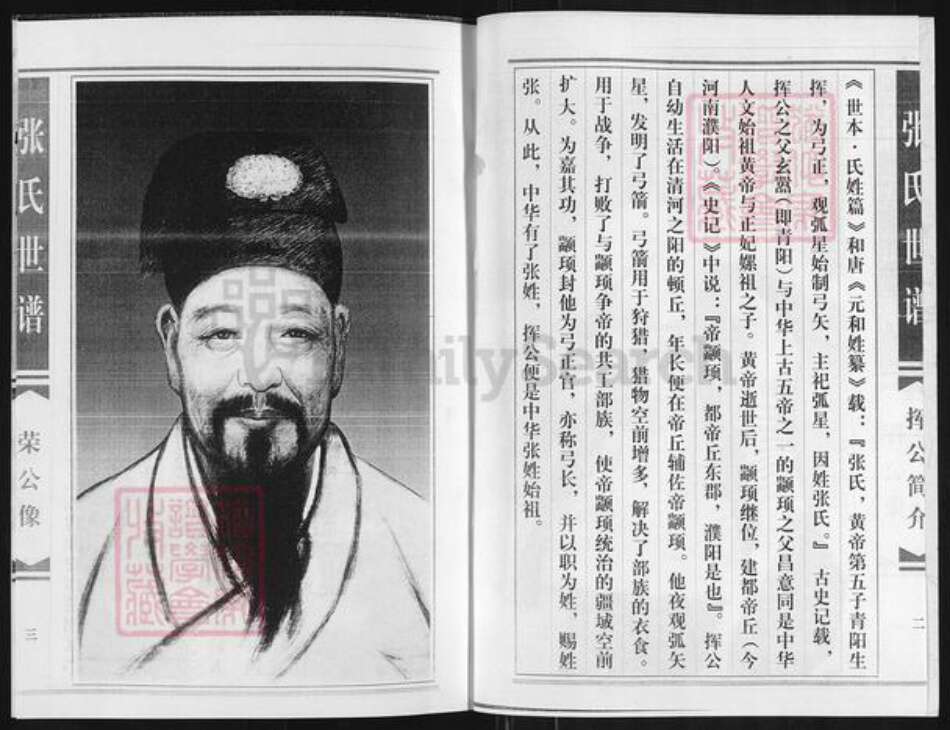 张氏世谱
挥公简介
二
《世本·氏姓篇》和唐《元和姓纂》载：『张氏，黄帝第五子青阳生
挥，为弓正，观弧星始制弓矢，主祀弧星，因姓张氏。』古史记载，
挥公之父玄嚣（即青阳）与中华上古五帝之一的颛顼之父昌意同是中华
人文始祖黄帝与正妃嫘祖之子。黄帝逝世后，颛顼继位，建都帝丘（今
河南濮阳）。《史记》中说：『帝颛顼，都帝丘东郡，濮阳是也』。挥公
自幼生活在清河之阳的顿丘，年长便在帝丘辅佐帝颛顼。他夜观弧矢
星，发明了弓箭。弓箭用于狩猎，猎物空前增多，解决了部族的衣食。
用于战争，打败了与颛顼争帝的共工部族，使帝颛顼统治的疆域空前
扩大。为嘉其功，颛顼封他为弓正官，亦称弓长，并以职为姓，赐姓
张。从此，中华有了张姓，挥公便是中华张姓始祖。
张氏世谱
荣公像
三